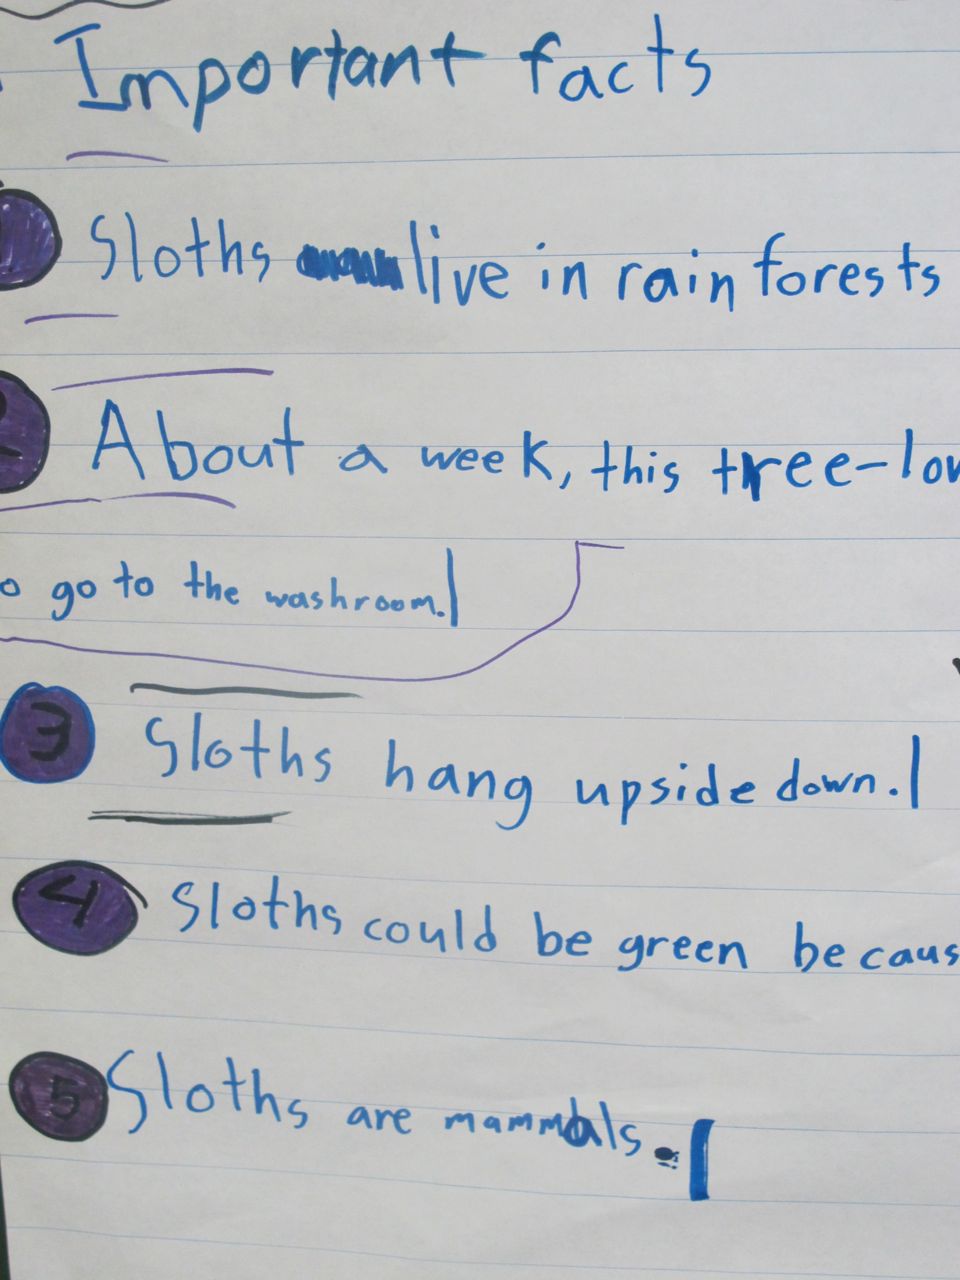 Important facts
1 Sloths live in rain forests
2 About a week, this tree-lov
o go to the washroom.
3 Sloths hang upside down.
4 Sloths could be green becaus
5 Sloths are mammals.